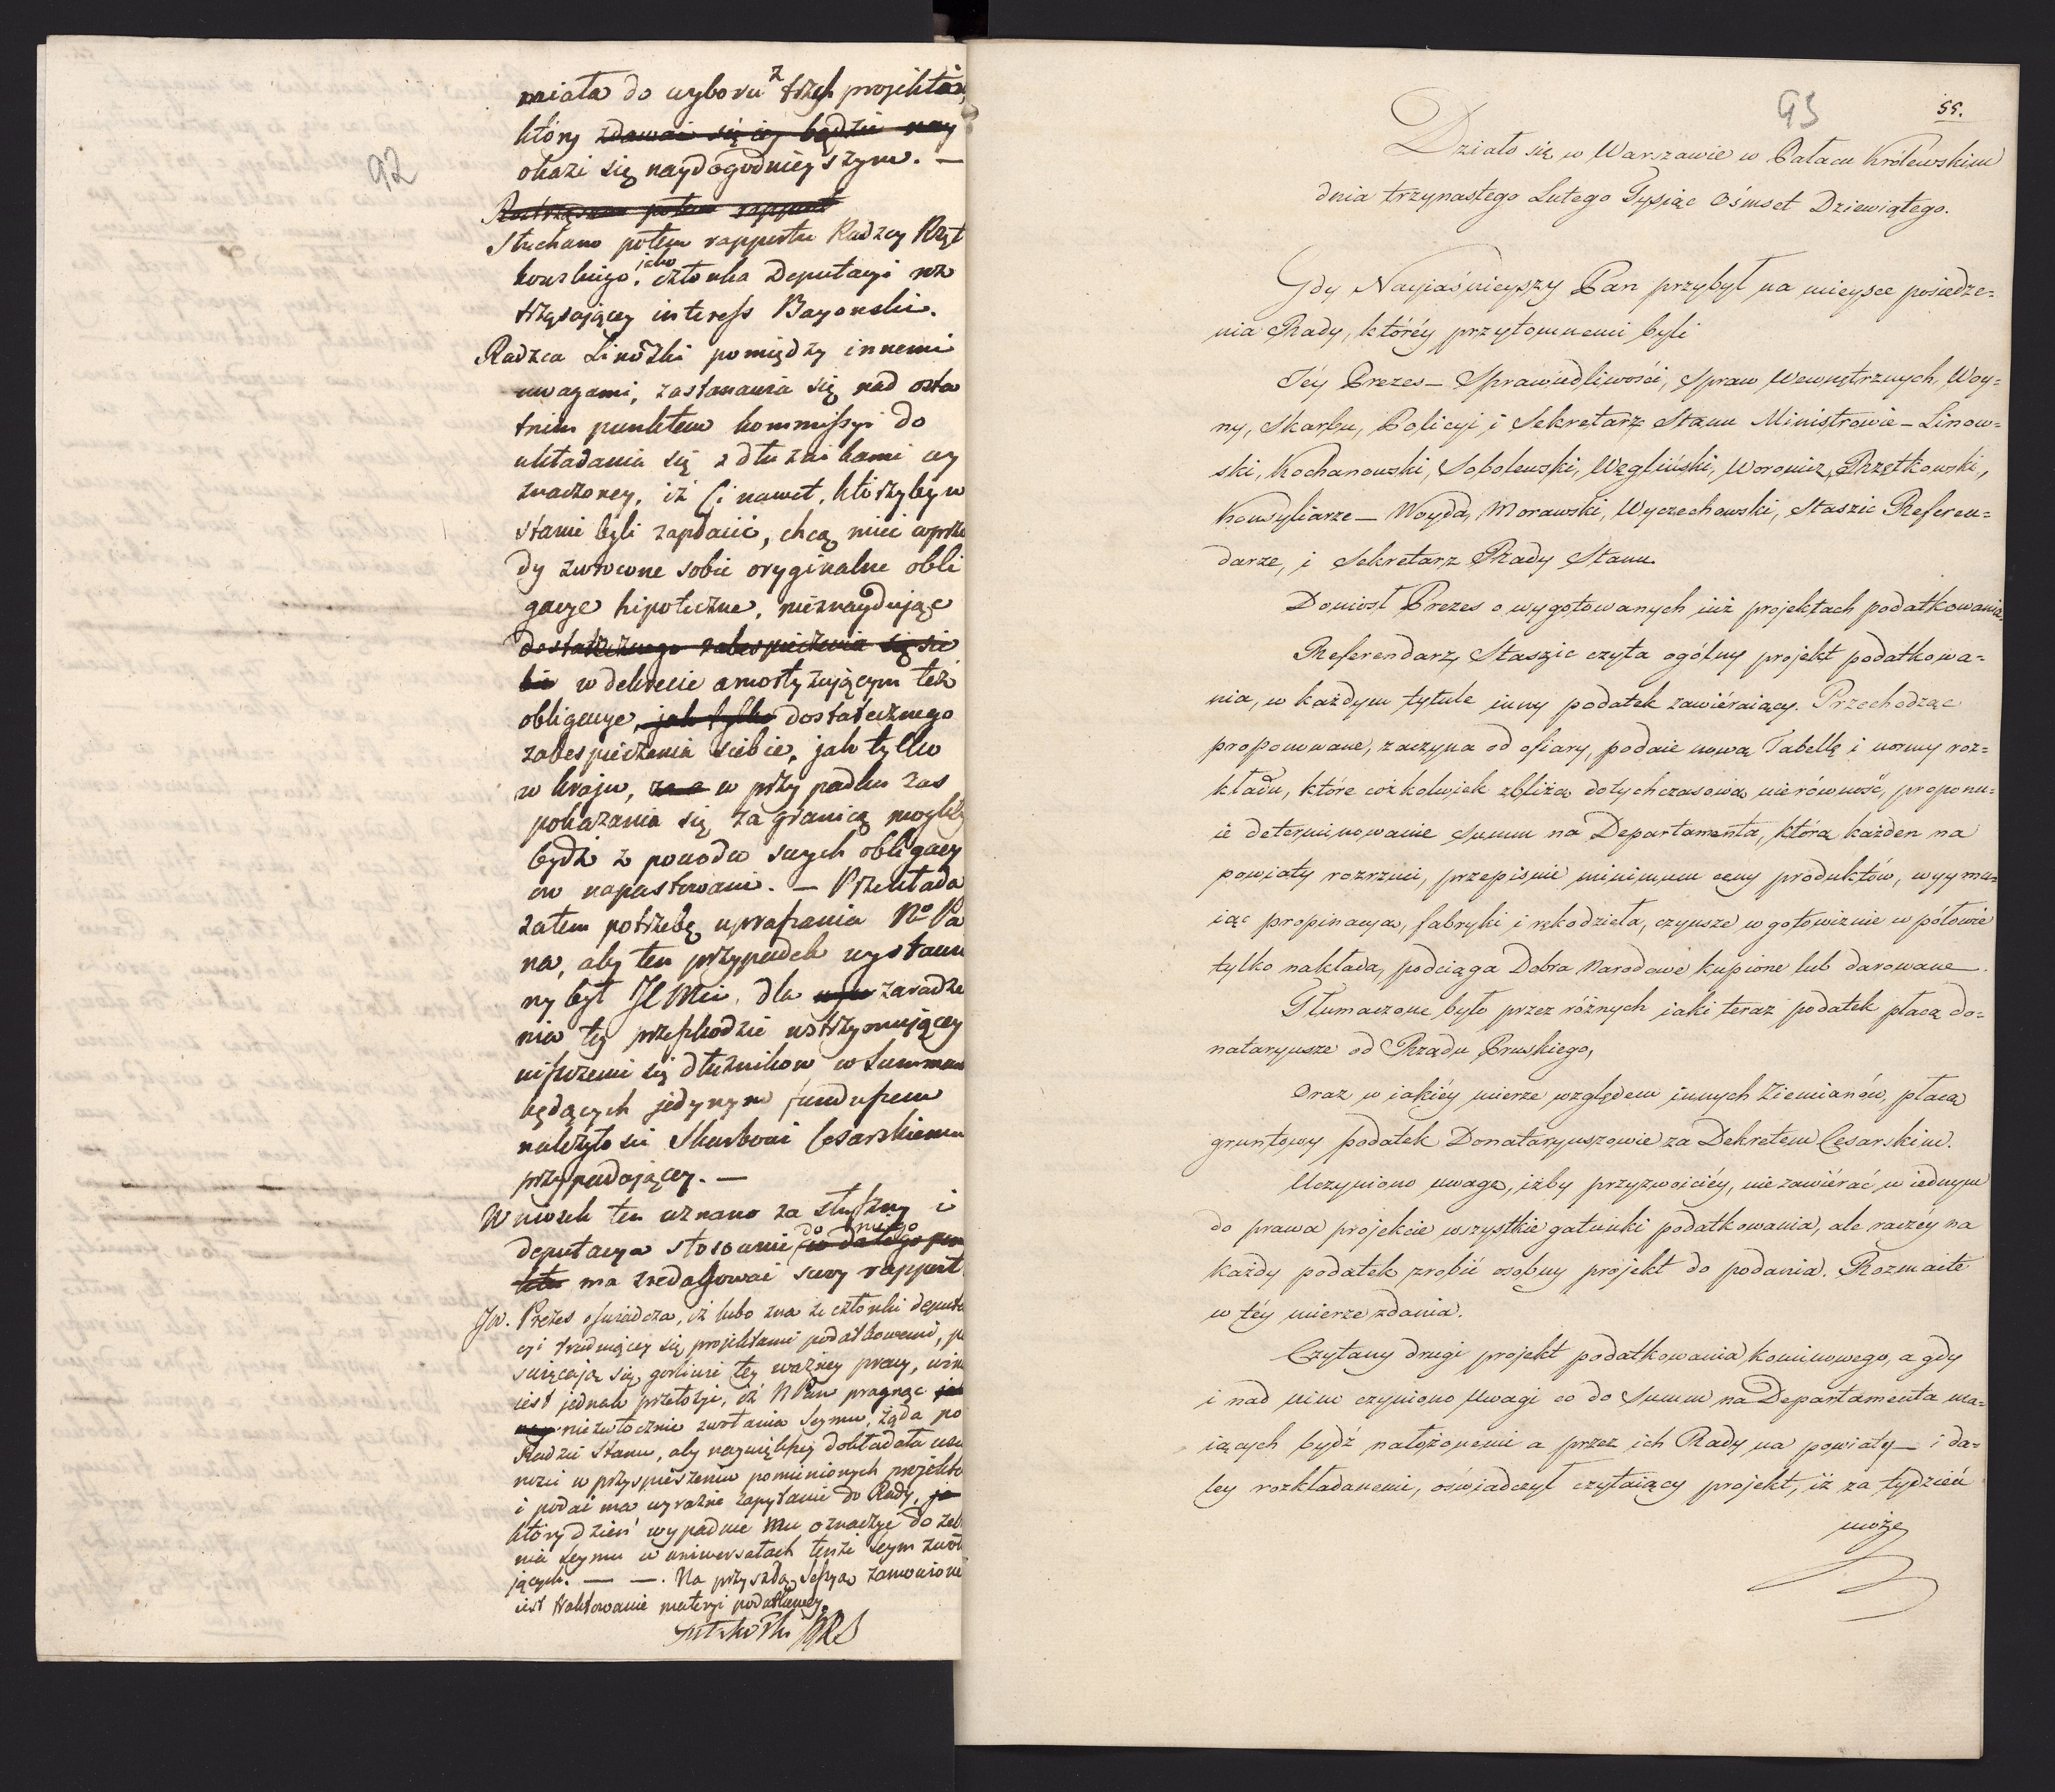 92
miała do wyboru z trzech projektów,
który zdawać się iey będzie nay
okaże się naydogodnieyszym. —
Roztrząsano potem rapport
Słuchano potem rapportu Radzcy Rzęt
kowskiego, jako członka Deputacyi roz
trząsającey interess Bayonski.
Radzca Linowski pomiędzy innemi
uwagami, zastanawia się nad osta
tnim punktem kommissyi do
układania się z dłużnikami wy
znaczoney, iż ci nawet, którzyby w
stanie byli zapłacić, chcą mieć wprzó
dy zwrócone sobie oryginalne obli
gacye hipoteczne, nieznaydując
dostatecznego zabespieczenia się sie
bie w dekrecie amortyzującym też
obligacye, jak tylko dostatecznego
zabespieczenia siebie, jak tylko
w kraju, za g w przypadku zas
pokazania się za granicą mogliby
bydź z powodu swych obligacy
ów napastowani. — Przekłada
zatem potrzebę uproszenia No Pa
na, aby ten przypadek wystawio
ny był JC Mci, dla zaradze
nia tey przeszkodzie wstrzymującey
uiszczenie się dłużników w summach
będących jedynym funduszem
należytości Skarbowi Cesarskiemu
przypadającey. —
Wniosek ten uznano za słuszny i
deputacya stosownie do niego do dałego pun
ktu ma zredagować swoy rapport
JW. Prezes oświadcza, iż lubo zna że członki deputa
cyi trudniącey się projektami podatkowemi, po
święcają się gorliwie tey ważney pracy, winien
iest jednak przełożyć, iż N Pan pragnąc jak
nay niezwłocznie zwołania Seymu, żąda po
Radzie Stanu, aby naywiększey dokładała usil
ności w przyspieszeniu pomienionych projektów
i podać ma wyraźne zapytanie do Rady, ja
który dzień wypadnie Mu oznaczyć do zebra
nia Seymu w uniwersałach tenże Seym zwołu
jących. — —. Na przyszłą Sessyą zamówione
iest traktowanie materyi podatkowey.
93
55.
Działo się w Warszawie w Pałacu Królewskim
dnia trzynastego Lutego Tysiąc Ośmset Dziewiątego.
Gdy Nayiaśnieyszy Pan przybył na mieysce posiedze=
nia Rady, któréy przytomnemi byli
Jéy Prezes — Sprawiedliwości, Spraw Wewnętrznych, Woy=
ny, Skarbu, Policyi, i Sekretarz Stanu Ministrowie — Linow=
ski, Kochanowski, Sobolewski, Węgliński, Woronicz, Rzętkowski,
Konsyliarze — Woyda, Morawski, Wyczechowski, Staszic Referen=
darze, i Sekretarz Rady Stanu.
Doniosł Prezes o wygotowanych iuż projektach podatkowania.
Referendarz Staszic czyta ogólny projekt podatkowa=
nia, w każdym tytule inny podatek zawiéraiący. Przechodząc
proponowane, zaczyna od ofiary, podaie nową Tabellę i normy roz=
kładu, które cożkolwiek zbliża dotychczasową nierówność, proponu=
ie determinowanie Summ na Departamenta, którą każden na
powiaty rozrzuci, przepisuie minimum ceny produktów, wyyma=
iąc propinacyą, fabryki i rękodzieła, czynsze w gotowiznie w półowie
tylko nakłada, podciąga Dobra Narodowe kupione lub darowane.
Tłumaczone było przez różnych iaki teraz podatek płacą do=
nataryusze od Rządu Pruskiego,
Oraz w iakiéy mierze względem innych Ziemianów, płacą
gruntowy podatek Donataryuszowie za Dekretem Cesarskim.
Uczyniono uwagę, iżby przyzwoiciéy, nie zawiérać w iednym
do prawa projekcie wszystkie gatunki podatkowania, ale raczéy na
każdy podatek zrobić osobny projekt do podania. Rozmaite
w téy mierze zdania.
Czytany drugi projekt podatkowania kominowego, a gdy
i nad nim czyniono Uwagi co do Summ na Departamenta ma=
iących bydź nałożonemi a przez ich Rady na powiaty — i da=
ley rozkładanemi, oświadczył czytaiący projekt, iż za tydzień
może